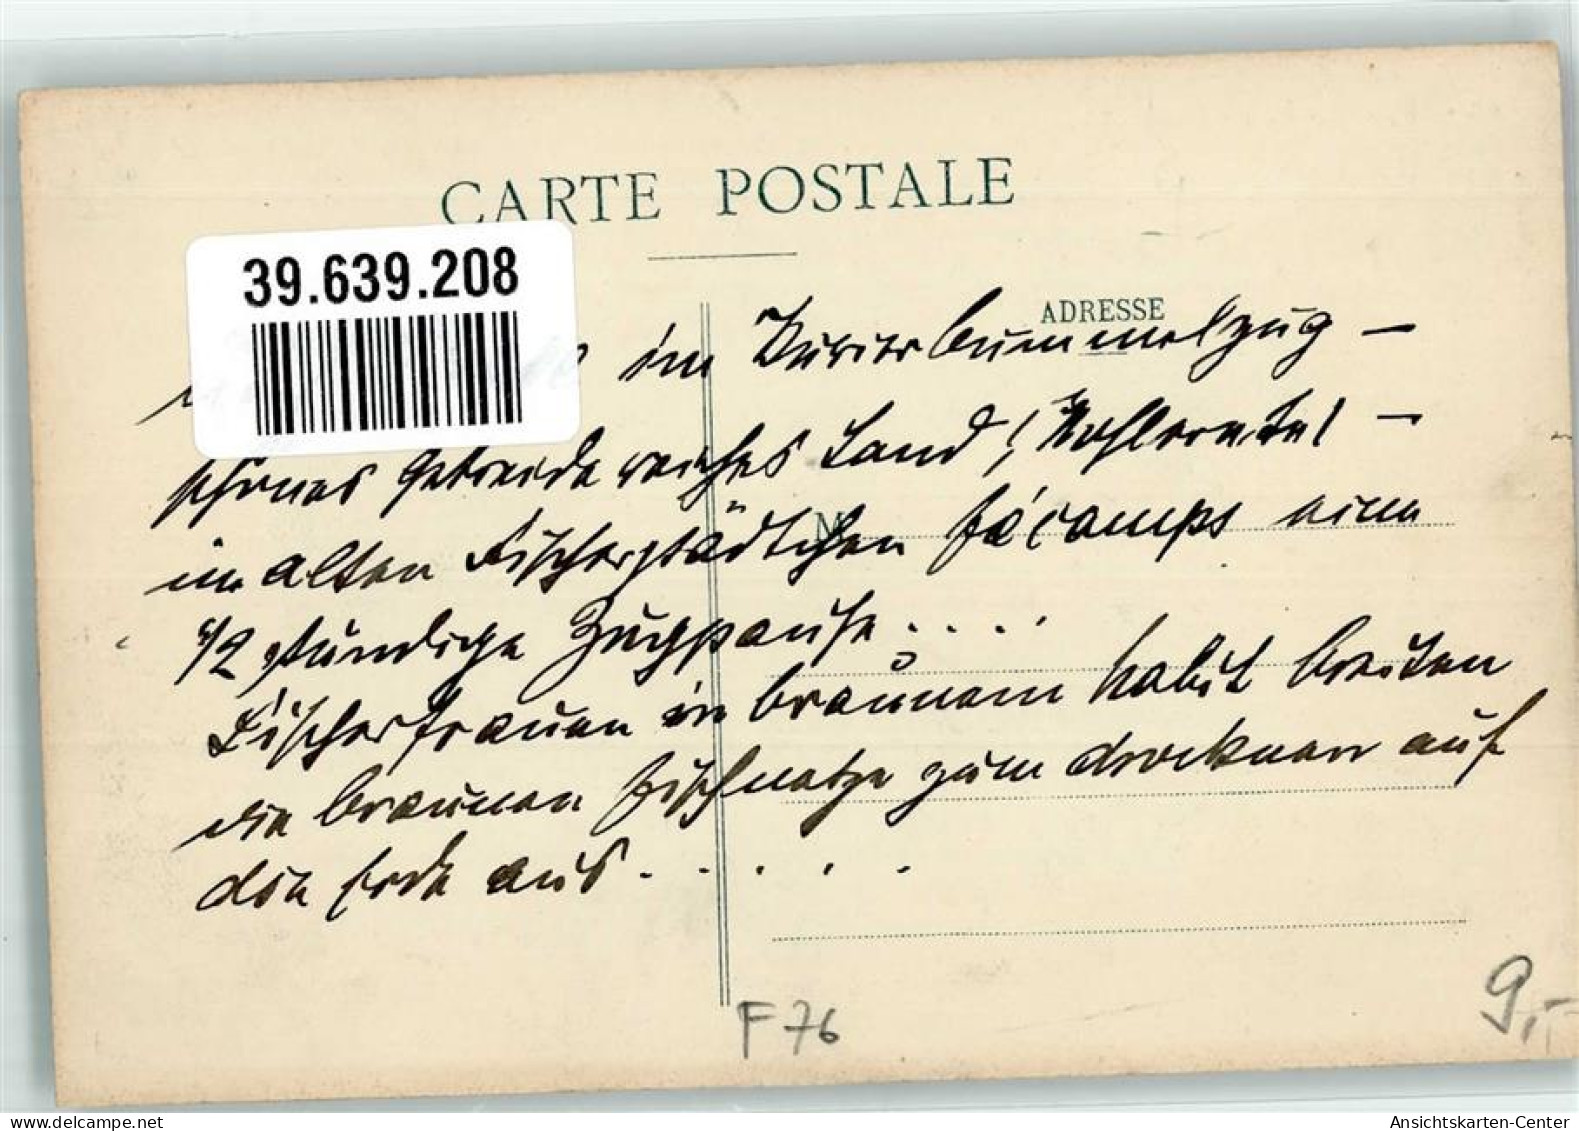 CARTE POSTALE
39.639.208
ADRESSE
im Kurierbummelzug —
schönes Getreidereiches Land, —
im alten Fischerstädtchen Fécamps eine
1/2 stündige Zugpause....
M
Fischerfrauen in braunem habit breiten
die braunen Fischnetze zum trocknen auf
der Erde aus.....
F 76
9,-
Ansichtskarten-Center